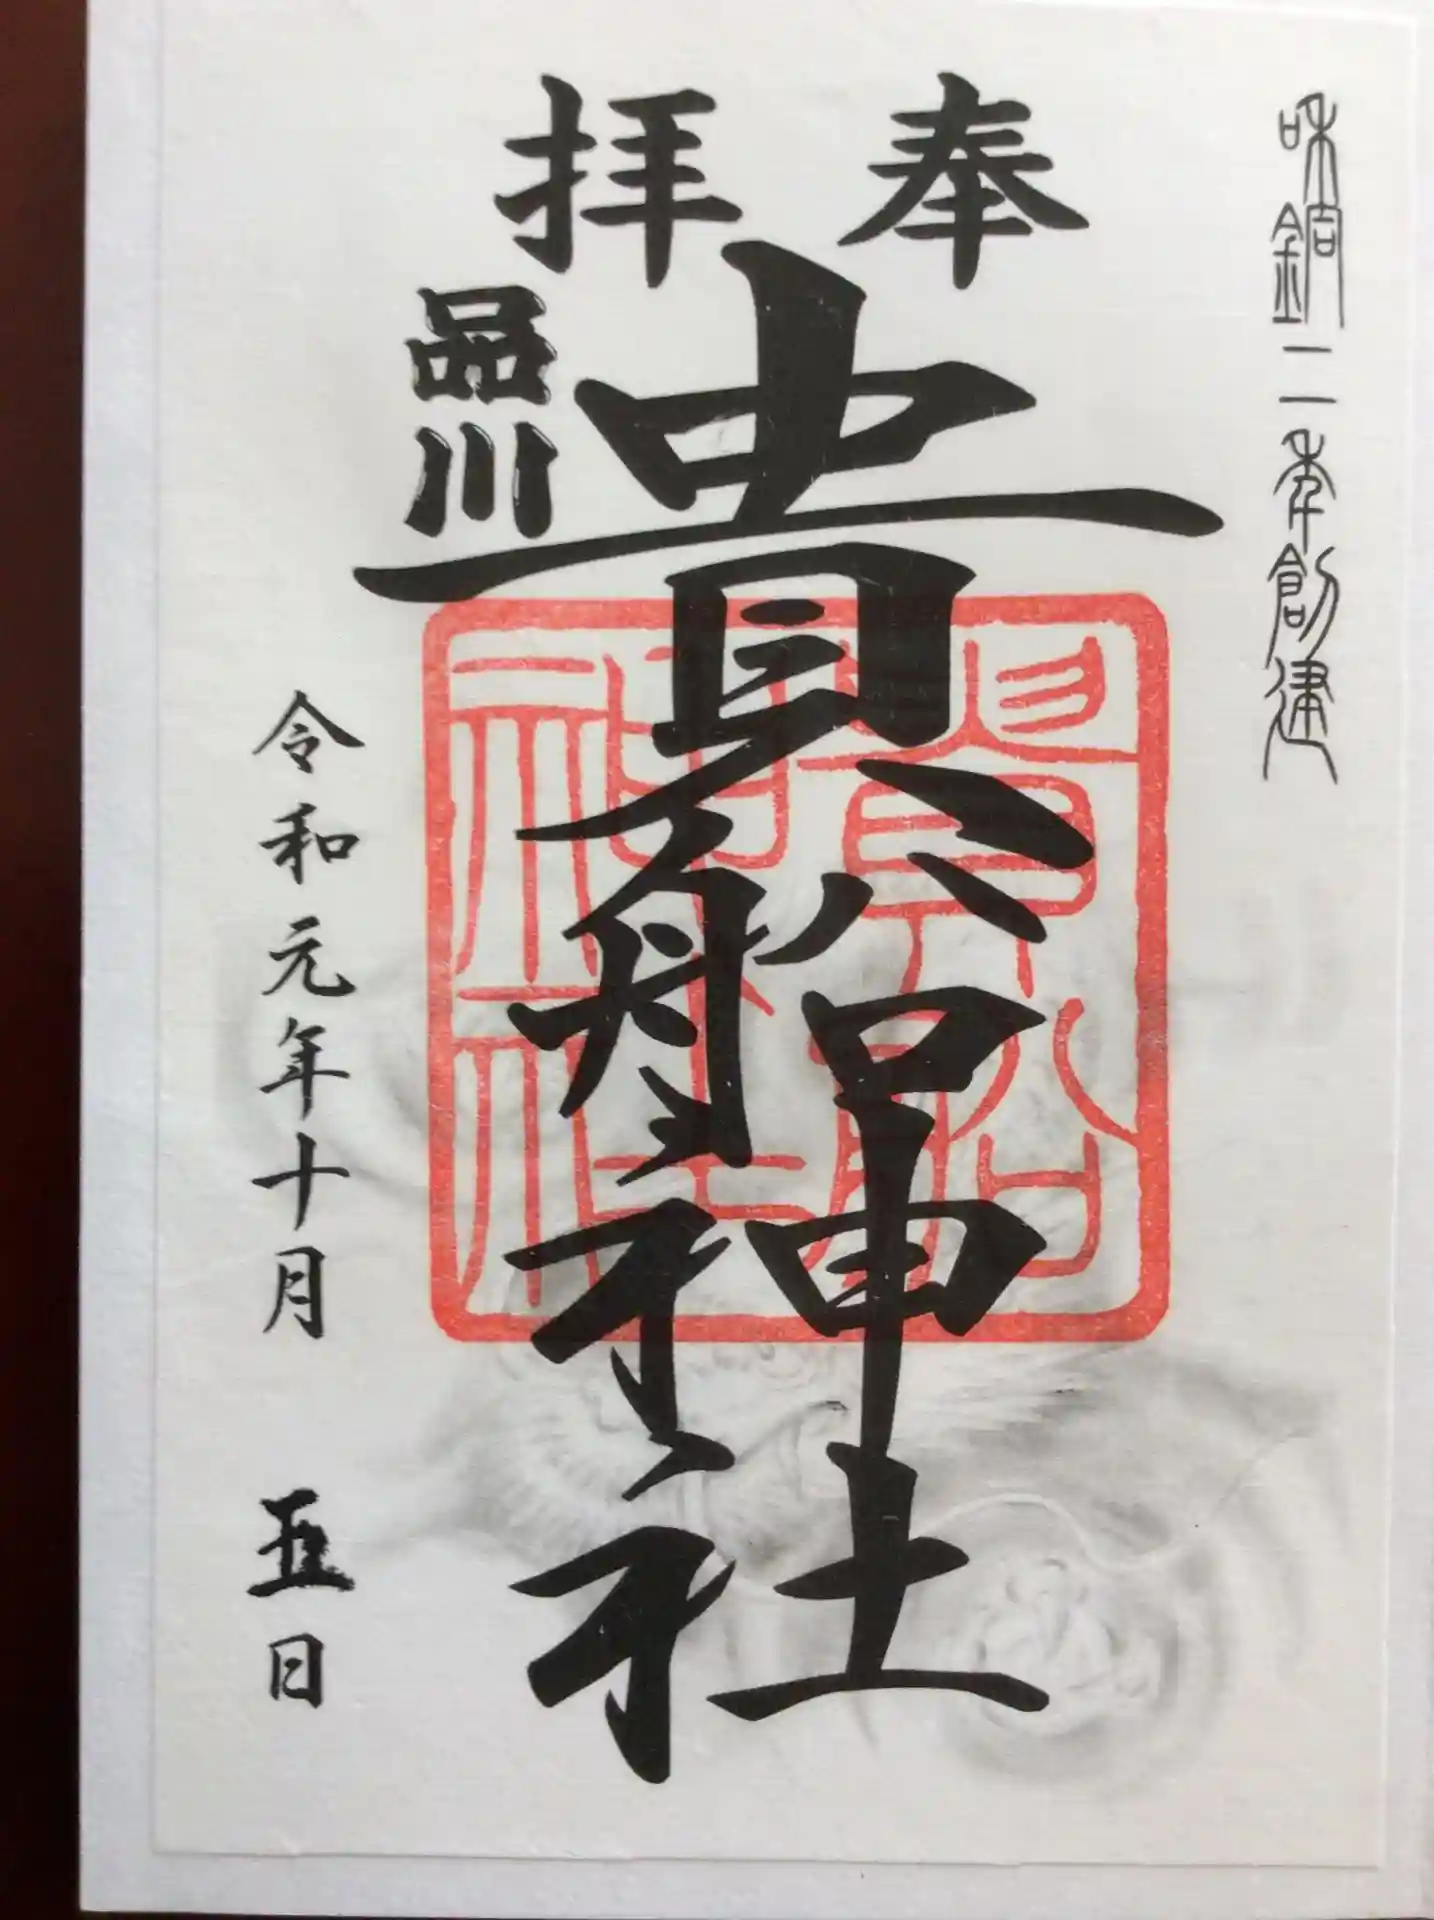 和銅二年創建
奉拝
貴船神社
品川
貴船神社
令和元年十月 五日